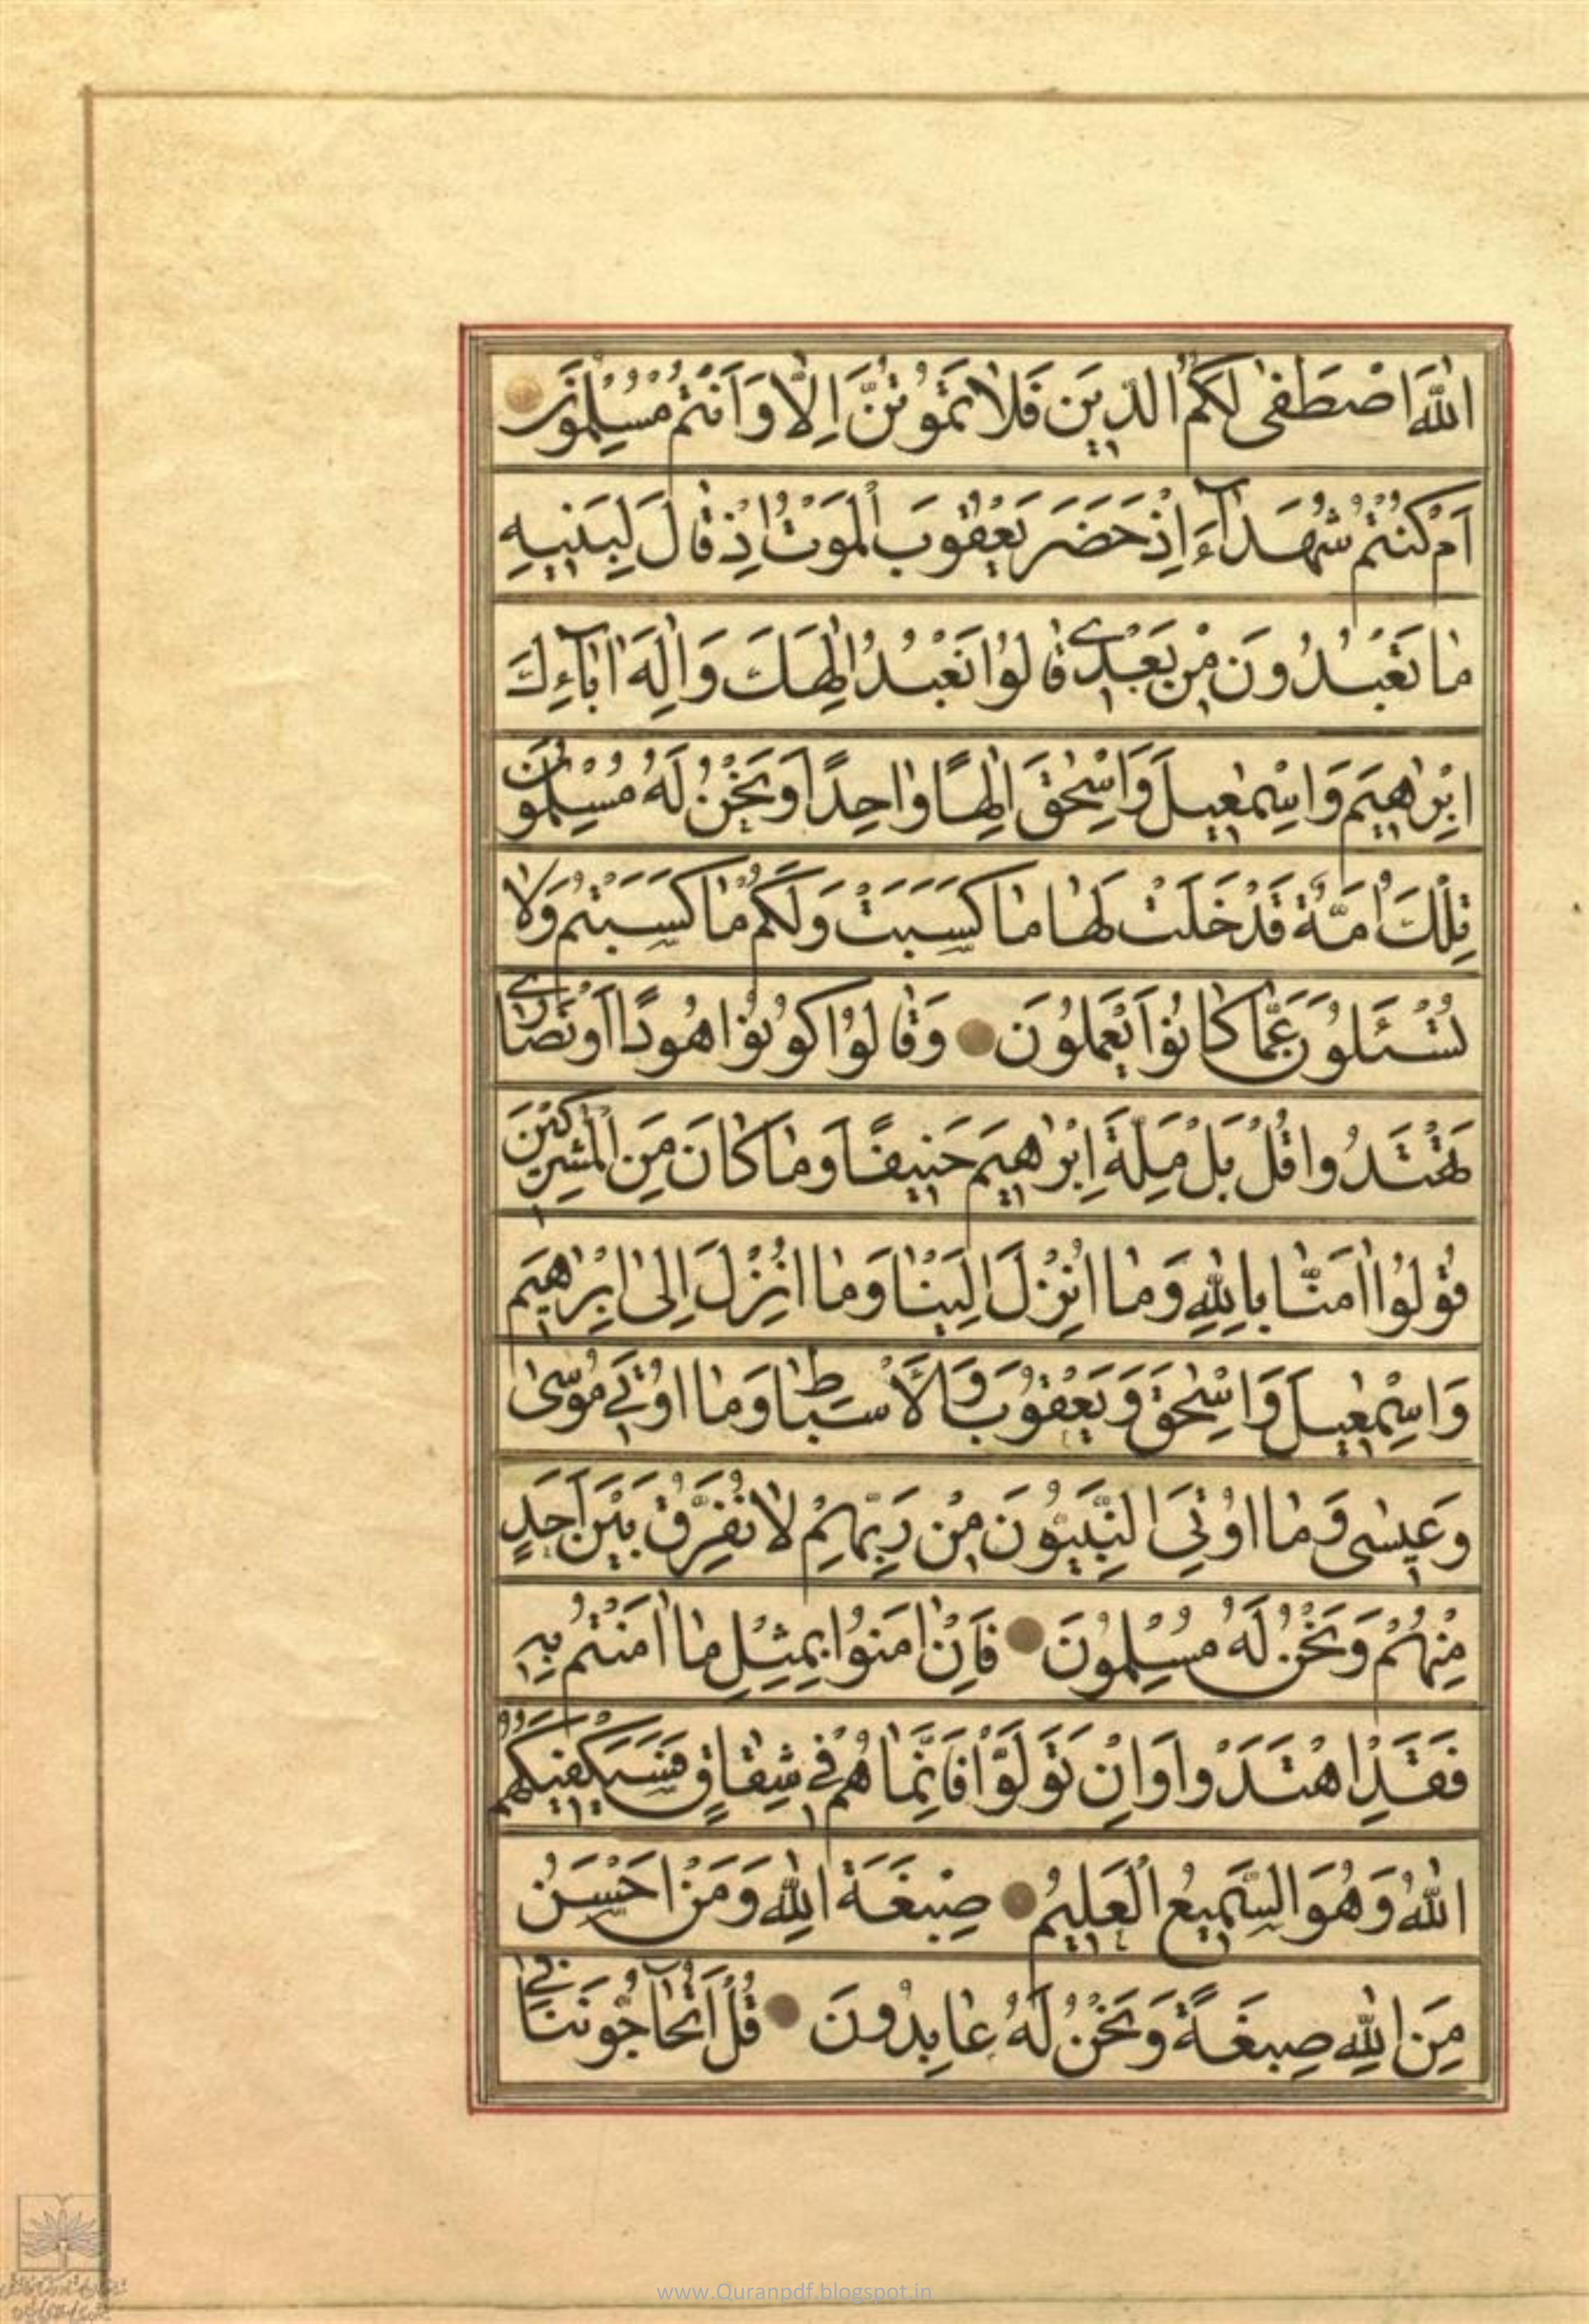 اللّٰهَ اصْطَفٰى لَكُمُ الدّينَ فَلَا تَمُوتُنَّ اِلَّا وَاَنْتُمْ مُسْلِمُونَ
اَمْ كُنْتُمْ شُهَدَآءَ اِذْ حَضَرَ يَعْقُوبَ الْمَوْتُ اِذْ قَالَ لِبَنيهِ
مٰا تَعْبُدُونَ مِنْ بَعْدي قٰالُوا نَعْبُدُ اِلٰهَكَ وَاِلٰهَ اٰبٰآءِكَ
اِبْرٰهيمَ وَاِسْمٰعيلَ وَاِسْحٰقَ اِلٰهًا وٰاحِدًا وَنَحْنُ لَهُ مُسْلِمُونَ
تِلْكَ اُمَّةٌ قَدْ خَلَتْ لَهٰا مٰا كَسَبَتْ وَلَكُمْ مٰا كَسَبْتُمْ وَلٰا
تُسْـَٔلُونَ عَمَّا كٰانُوا يَعْمَلُونَ وَقٰالُوا كُونُوا هُودًا اَوْ نَصٰارٰى
تَهْتَدُوا قُلْ بَلْ مِلَّةَ اِبْرٰهيمَ حَنيفًا وَمٰا كٰانَ مِنَ الْمُشْرِكينَ
قُولُوا اٰمَنّٰا بِاللّٰهِ وَمٰا اُنْزِلَ اِلَيْنٰا وَمٰا اُنْزِلَ اِلٰى اِبْرٰهيمَ
وَاِسْمٰعيلَ وَاِسْحٰقَ وَيَعْقُوبَ وَالْاَسْبٰاطِ وَمٰا اُوتِيَ مُوسٰى
وَعيسٰى وَمٰا اُوتِيَ النَّبِيُّونَ مِنْ رَبِّهِمْ لٰا نُفَرِّقُ بَيْنَ اَحَدٍ
مِنْهُمْ وَنَحْنُ لَهُ مُسْلِمُونَ فَاِنْ اٰمَنُوا بِمِثْلِ مٰا اٰمَنْتُمْ بِهِ
فَقَدِ اهْتَدَوْا وَاِنْ تَوَلَّوْا فَاِنَّمٰا هُمْ في شِقٰاقٍ فَسَيَكْفيكَهُمُ
اللّٰهُ وَهُوَ السَّميعُ الْعَليمُ صِبْغَةَ اللّٰهِ وَمَنْ اَحْسَنُ
مِنَ اللّٰهِ صِبْغَةً وَنَحْنُ لَهُ عٰابِدُونَ قُلْ اَتُحٰآجُّونَنٰا فِي
www.Quranpdf.blogspot.in